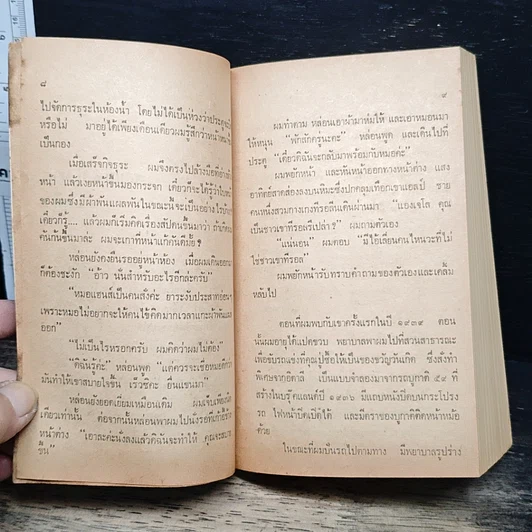 ๘
ไปจัดการธุระในห้องน้ำ โดยไม่ได้เป็นห่วงว่าประตู
หรือไม่ มาอยู่ได้เพียงเดือนเดียวผมรู้สึกว่า
เป็นกอง
เมื่อเสร็จกิจธุระ ผมจึงตรงไปล้างมือ
หน้า แล้วเงยหน้าขึ้นมองกระจก เดี๋ยวก็จะได้รู้ว่าใบหน้า
ของผมซึ่งมีผ้าพันแผลพันในขณะนี้จะเป็นอย่างไร
เดี๋ยวก็รู้.... แล้วผมก็เริ่มคิดเรื่องสัปดนขึ้นมาว่า ถ้าเกิด
คันก้นขึ้นมาล่ะ ผมจะเกาที่หน้าแก้คันดีมั้ย ?
หล่อนยังคงยืนรออยู่หน้าห้อง เมื่อผมเดินออก
ก็ต้องชะงัก "อ้าว นั่นสำหรับอะไรอีกล่ะครับ"
"หมอแฮนส์เป็นคนสั่งค่ะ ยาระงับประสาทอ่อน ๆ
เพราะหมอไม่อยากจะให้คนไข้คิดมากเวลาแกะผ้าพันแผล
ออก"
"ไม่เป็นไรหรอกครับ ผมคิดว่าผมไม่ต้อง"
"ดิฉันรู้ค่ะ" หล่อนพูด "แต่ควรจะเชื่อหมอดีกว่า
มันทำให้เขาสบายใจขึ้น เร็วซิคะ ยื่นแขนมา"
หล่อนยังยอดเยี่ยมเหมือนเดิม ผมเจ็บเพียง
เดียวเท่านั้น ต่อจากนั้นหล่อนพาผมไปนั่งรอที่เก้าอี้
หน้าต่าง "เอาละค่ะนั่งลงแล้วดิฉันจะทำให้ คุณจะสบาย
ขึ้น"
๙
ผมทำตาม หล่อนเอาผ้ามาห่มให้ และเอาหมอนมา
ให้หนุน "พักสักครู่นะคะ" หล่อนพูด และเดินไปที่
ประตู "เดี๋ยวดิฉันจะกลับมาพร้อมกับหมอค่ะ"
ผมพยักหน้า และหันหน้าออกทางหน้าต่าง แสง
อาทิตย์สาดส่องลงบนหิมะซึ่งปกคลุมเทือกเขาแอลป์ ชาย
คนหนึ่งสวมกางเกงทีรอลีนเดินผ่านมา "แองเจโล คุณ
เป็นชาวเขาทีรอลรึเปล่า ?" ผมถามตัวเอง
"แน่นอน" ผมตอบ "มีไอ้เลี่ยนคนไหนวะที่ไม่
ใช่ชาวเขาทีรอล"
ผมพยักหน้ารับทราบคำถามของตัวเองและเคลิ้ม
หลับไป
ตอนที่ผมพบกับเขาครั้งแรกในปี ๑๙๓๙ ตอน
นั้นผมอายุได้แปดขวบ พยาบาลพาผมไปที่สวนสาธารณะ
เพื่อขับรถเข่งที่คุณปู่ซื้อให้เป็นของขวัญวันเกิด ซึ่งสั่งทำ
พิเศษจากอิตาลี เป็นแบบจำลองมาจากรถบูกาติ ๕๙ ที่
สร้างในบรุ๊คแลนด์ปี ๑๙๓๖ มีแถบหนังปิดบนกระโปรง
รถ ไฟหน้าปิดเปิดได้ และมีตราของบูกาติติดหน้าหม้อ
ด้วย
ในขณะที่ผมปั่นรถไปตามทาง มีพยาบาลรูปร่าง